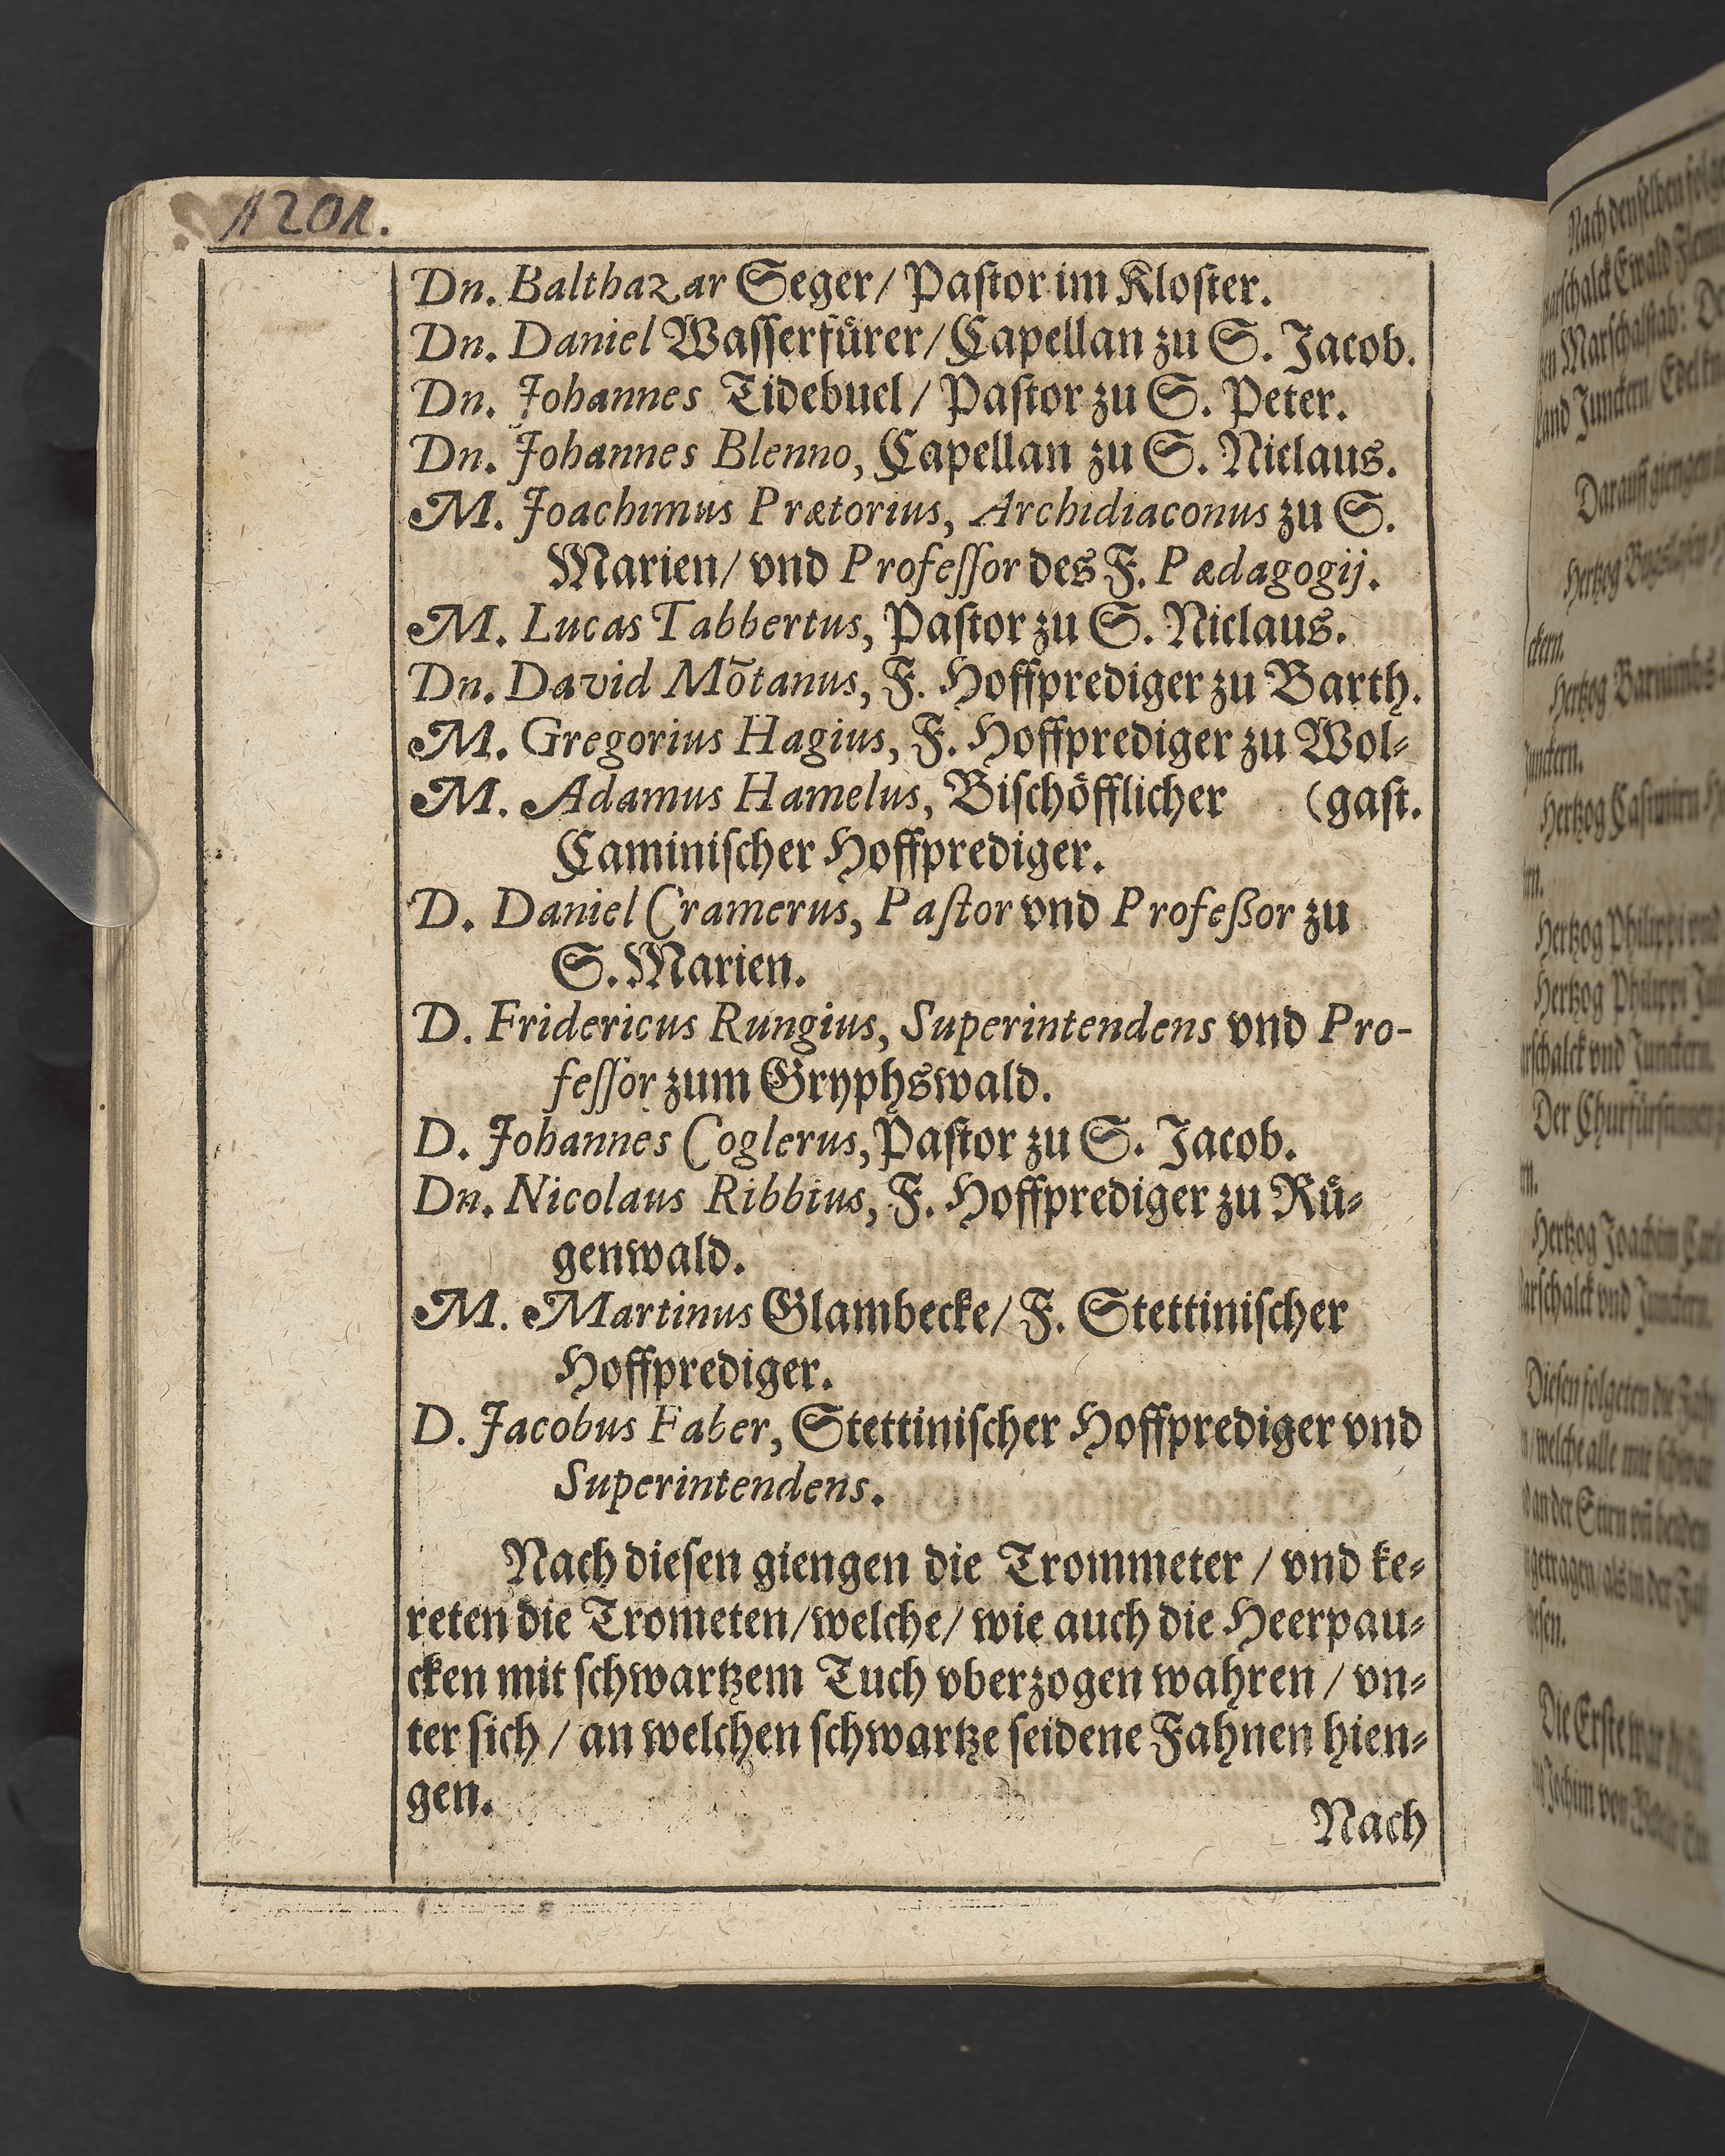 1201.
Dn. Balthazar Seger/ Paſtor im Kloſter.
Dn. Daniel Waſſerfuͤrer/ Capellan zu S. Jacob.
Dn. Johannes Tidebuel/ Paſtor zu S. Peter.
Dn. Johannes Blenno, Capellan zu S. Niclaus.
M. Joachimus Prætorius, Archidiaconus zu S.
Marien/ vnd Profeſſor des F. Pædagogij.
M. Lucas Tabbertus, Paſtor zu S. Niclaus.
Dn. David Mõtanus, F. Hoffprediger zu Barth.
M. Gregorius Hagius, F. Hoffprediger zu Wol⸗
M. Adamus Hamelus, Biſchoͤfflicher (gaſt.
Caminiſcher Hoffprediger.
D. Daniel Cramerus, Paſtor vnd Profeßor zu
S. Marien.
D. Fridericus Rungius, Superintendens vnd Pro-
feſſor zum Gryphswald.
D. Johannes Coglerus, Paſtor zu S. Jacob.
Dn. Nicolaus Ribbius, F. Hoffprediger zu Ruͤ⸗
genwald.
M. Martinus Glambecke/ F. Stettiniſcher
Hoffprediger.
D. Jacobus Faber, Stettiniſcher Hoffprediger vnd
Superintendens.
Nach dieſen giengen die Trommeter / vnd ke⸗
reten die Trometen/welche/ wie auch die Heerpau⸗
cken mit ſchwartzem Tuch vberzogen wahren / vn⸗
ter ſich / an welchen ſchwartze ſeidene Fahnen hien⸗
gen.
Nach
Nach denſelben
Marſchalck Ewald
Marſchalſtab:
Junckern/
Darauff giengen
Hertzog
ckern.
Hertzog Barnimbs
Junckern.
Hertzog Caſimirn
Hertzog Philippi vnd
Hertzog Philippi
vnd Junckern.
Der
Hertzog Joachim
vnd Junckern.
Dieſen folgeten die
welche alle mit
an der Stirn vñ beiden
getragen/ als in der
Die Erſte war
von